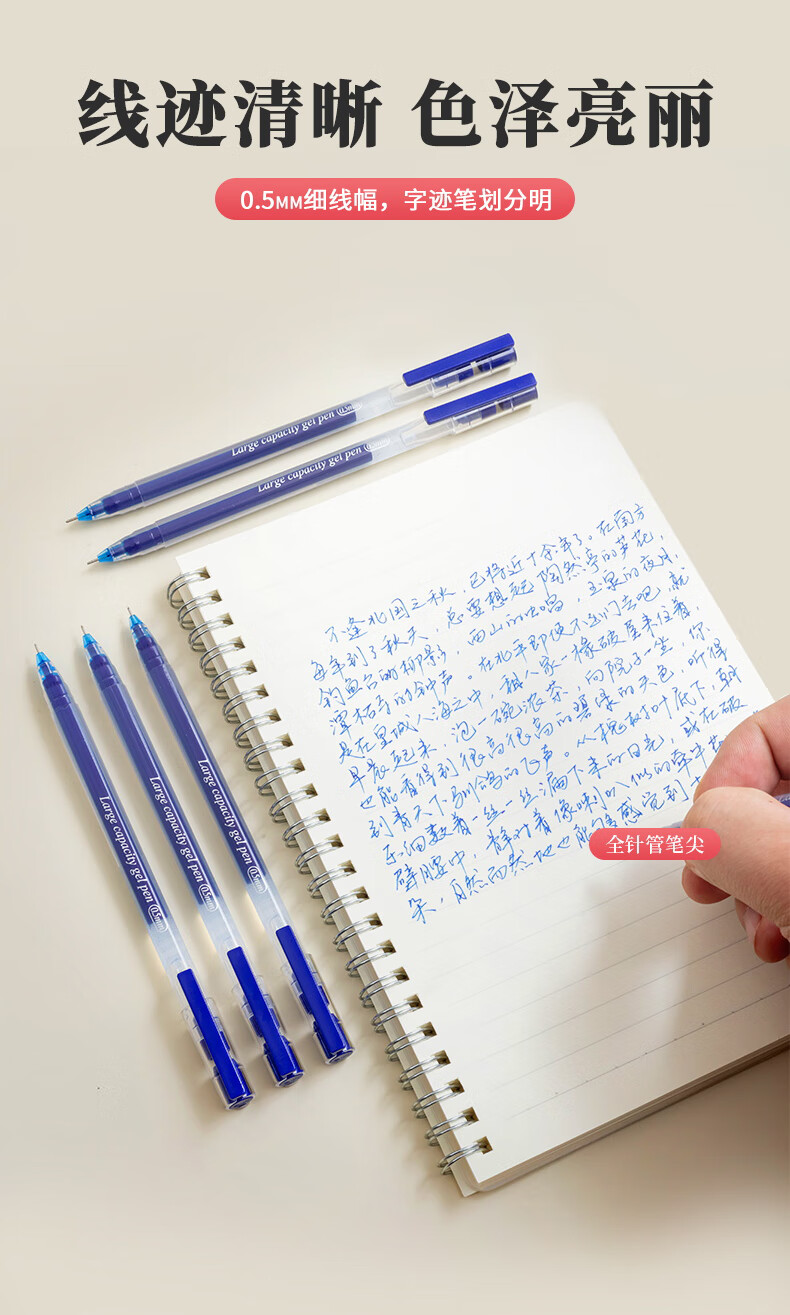 线迹清晰 色泽亮丽
0.5MM细线幅，字迹笔划分明
Large capacity gel pen 0.5mm
Large capacity gel pen 0.5mm
不逢北国之秋，已将近十余年了。在南方
每年到了秋天，总要想起陶然亭的芦花，
钓鱼台的柳影，西山的虫唱，玉泉的夜月，
潭柘寺的钟声。在北平即使不出门去吧，就
是在皇城人海之中，租人家一椽破屋来住着，
早晨起来，泡一碗浓茶，向院子一坐，你
也能看得到很高很高的碧绿的天色，听得
到青天下驯鸽的飞声。从槐树叶底下，朝
细数着一丝一丝漏下来的日光，或在破
壁腰中，静对着像喇叭似的牵牛
朵，自然而然地也能够感觉到十
全针管笔尖
Large capacity gel pen 0.5mm
Large capacity gel pen 0.5mm
Large capacity gel pen 0.5mm